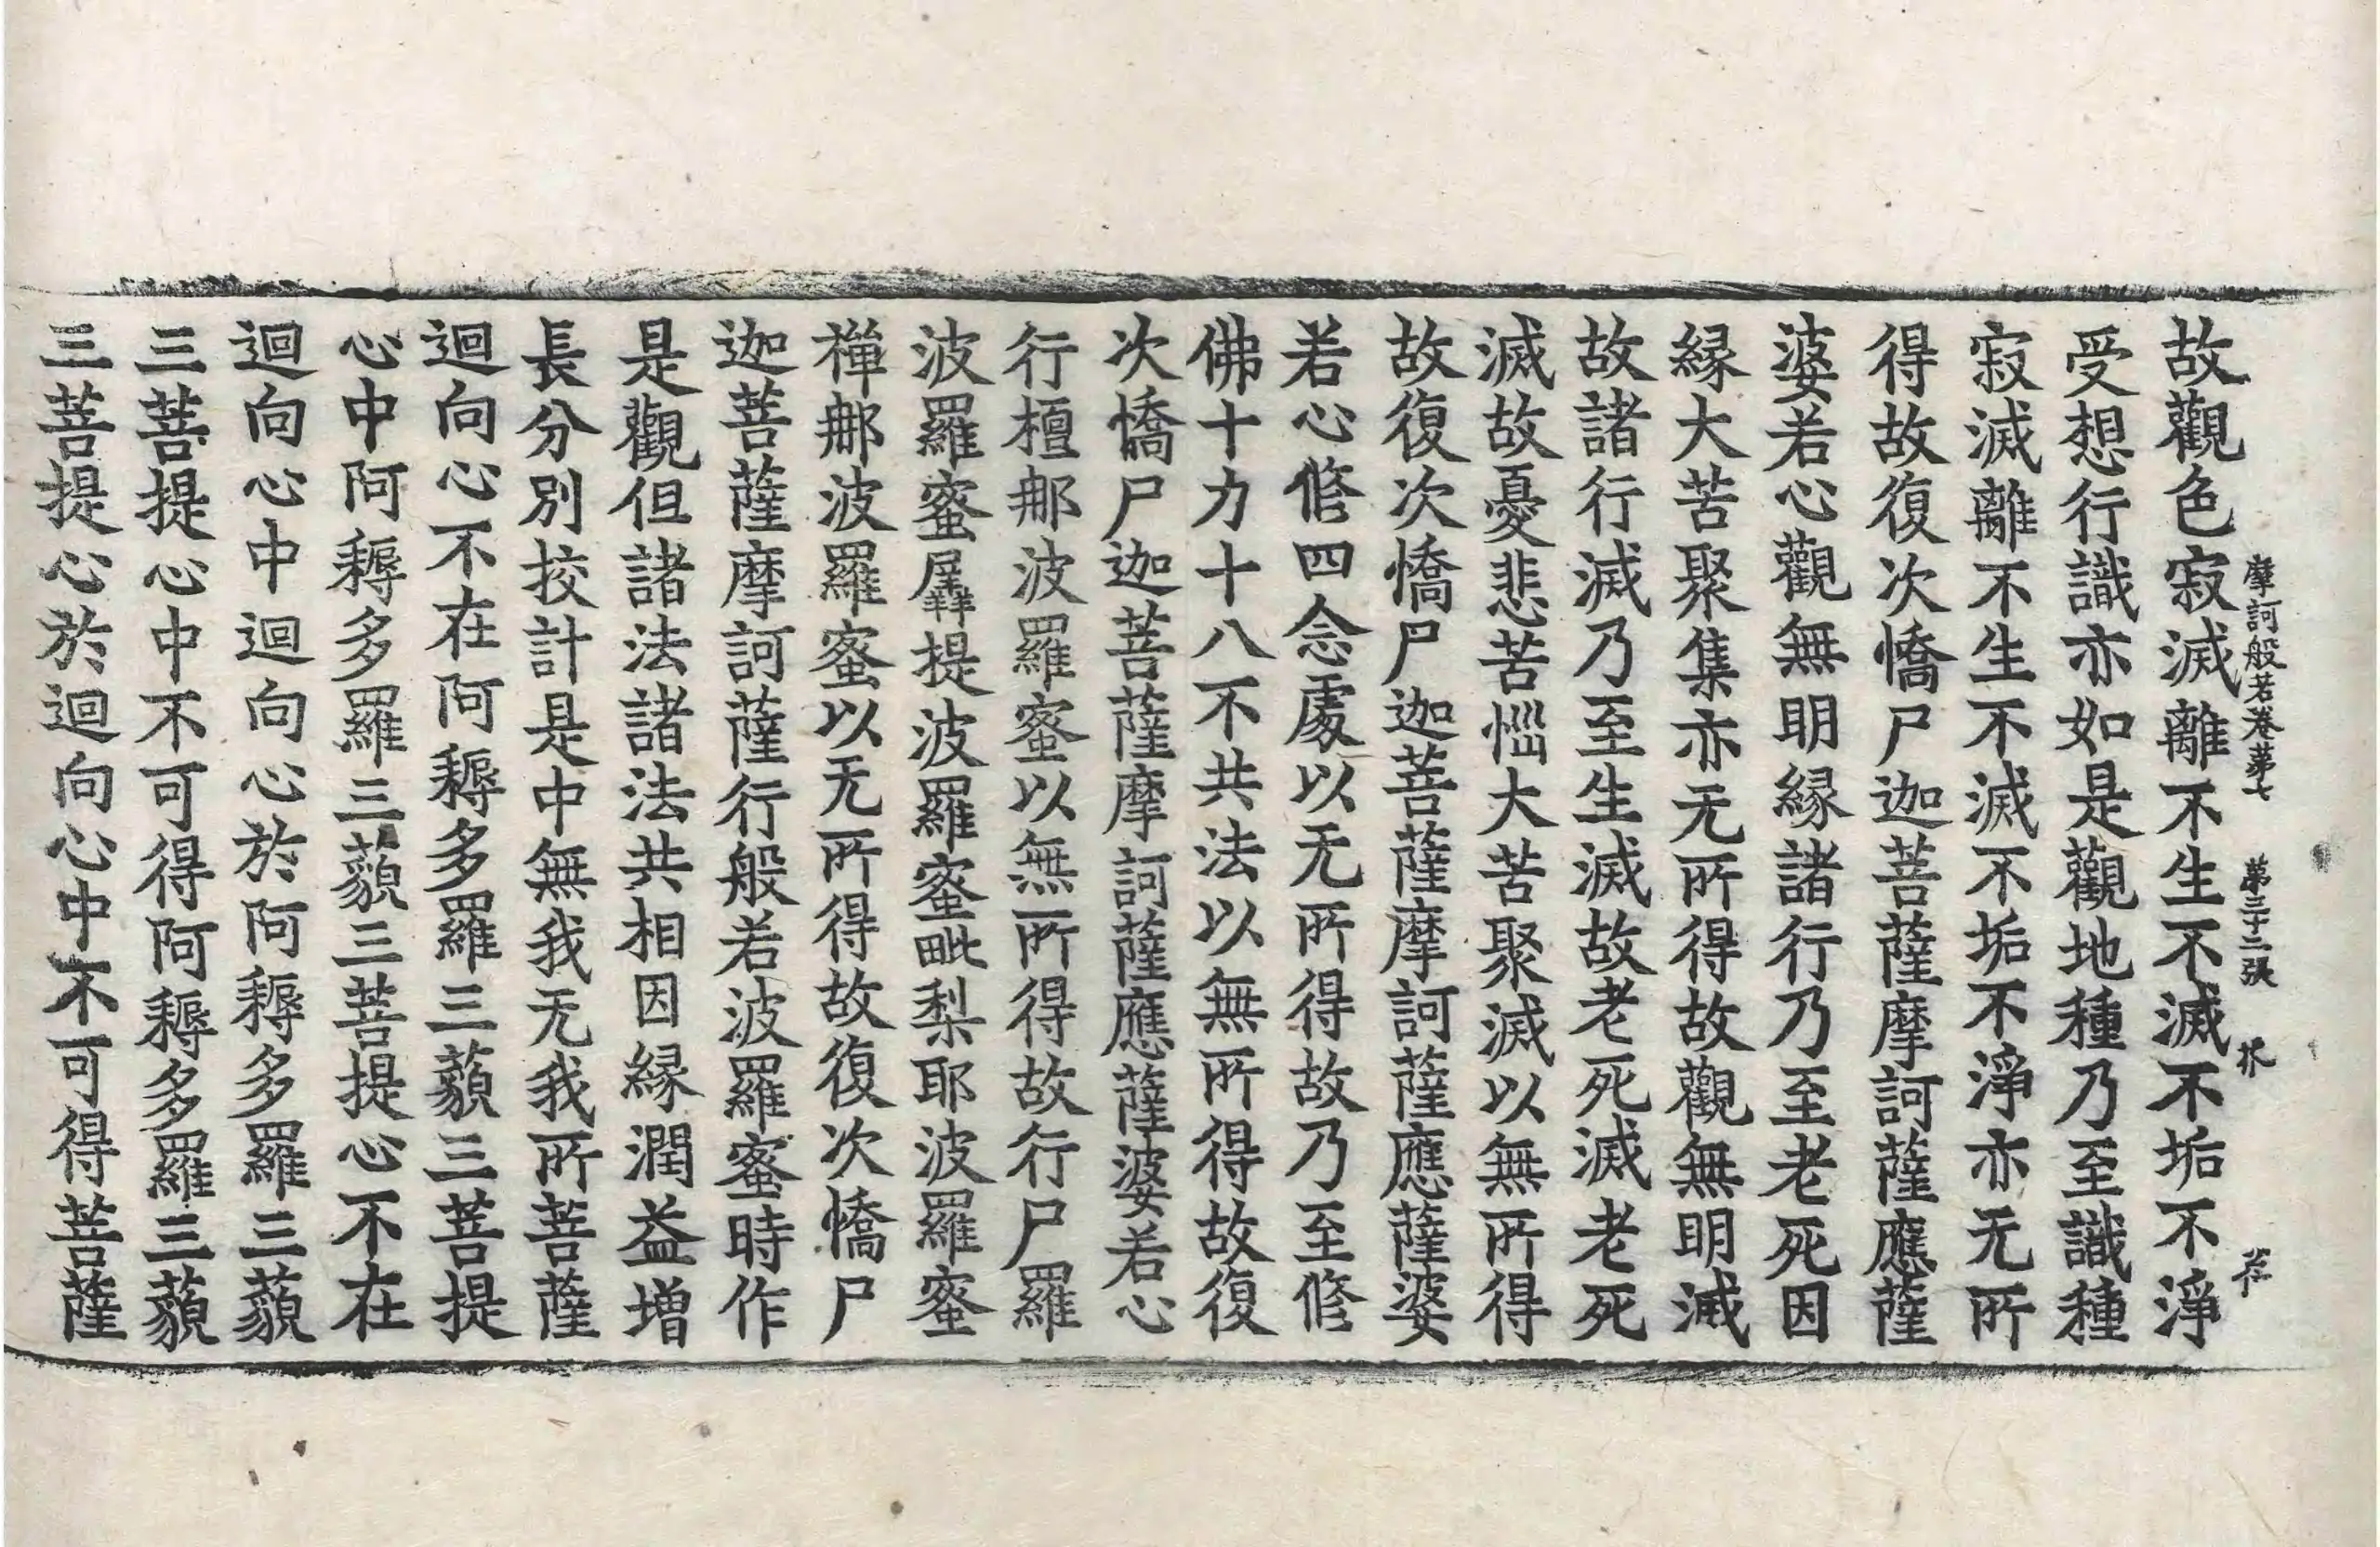 故觀色寂滅離不生不滅不垢不淨
摩訶般若卷第七 第三十二張
受想行識亦如是觀地種乃至識種
寂滅離不生不滅不垢不淨亦无所
得故復次憍尸迦菩薩摩訶薩應薩
婆若心觀無明緣諸行乃至老死因
緣大苦聚集亦无所得故觀無明滅
故諸行滅乃至生滅故老死滅老死
滅故憂悲苦惱大苦聚滅以無所得
故復次憍尸迦菩薩摩訶薩應薩婆
若心修四念處以无所得故乃至修
佛十力十八不共法以無所得故復
次憍尸迦菩薩摩訶薩應薩婆若心
行檀那波羅蜜以無所得故行尸羅
波羅蜜羼提波羅蜜毗梨耶波羅蜜
禪那波羅蜜以无所得故復次憍尸
迦菩薩摩訶薩行般若波羅蜜時作
是觀但諸法諸法共相因緣潤益增
長分別挍計是中無我无我所菩薩
迴向心不在阿耨多羅三藐三菩提
心中阿耨多羅三藐三菩提心不在
迴向心中迴向心於阿耨多羅三藐
三菩提心中不可得阿耨多羅三藐
三菩提心於迴向心中不可得菩薩